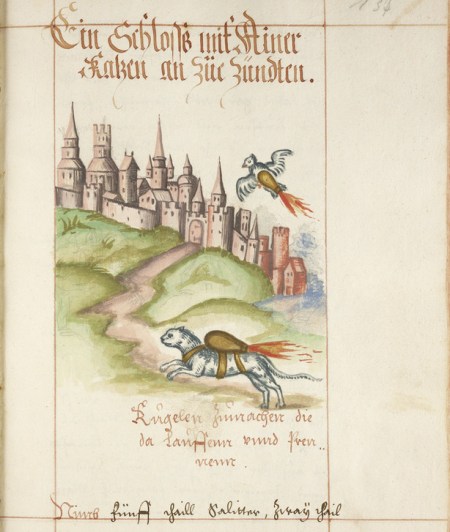 134
Ein Schloss mit Ainer
Katzen an züe zündten.
Kugelen Zumachen die
da Lauffenn unnd Pren„
nenn.
Nimb fünff thaill Salitter, zway thail